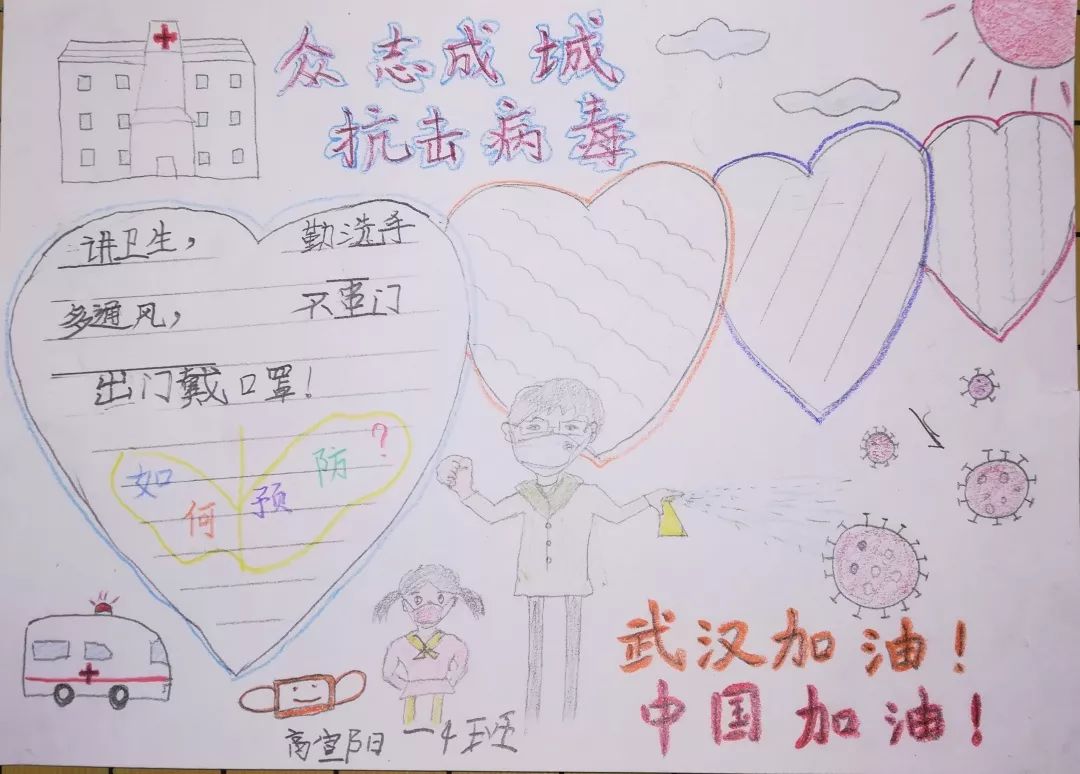 众志成城
抗击病毒
讲卫生， 勤洗手
多通风， 不串门
出门戴口罩！
如何预防？
武汉加油！
中国加油！
高宣阳 一4班